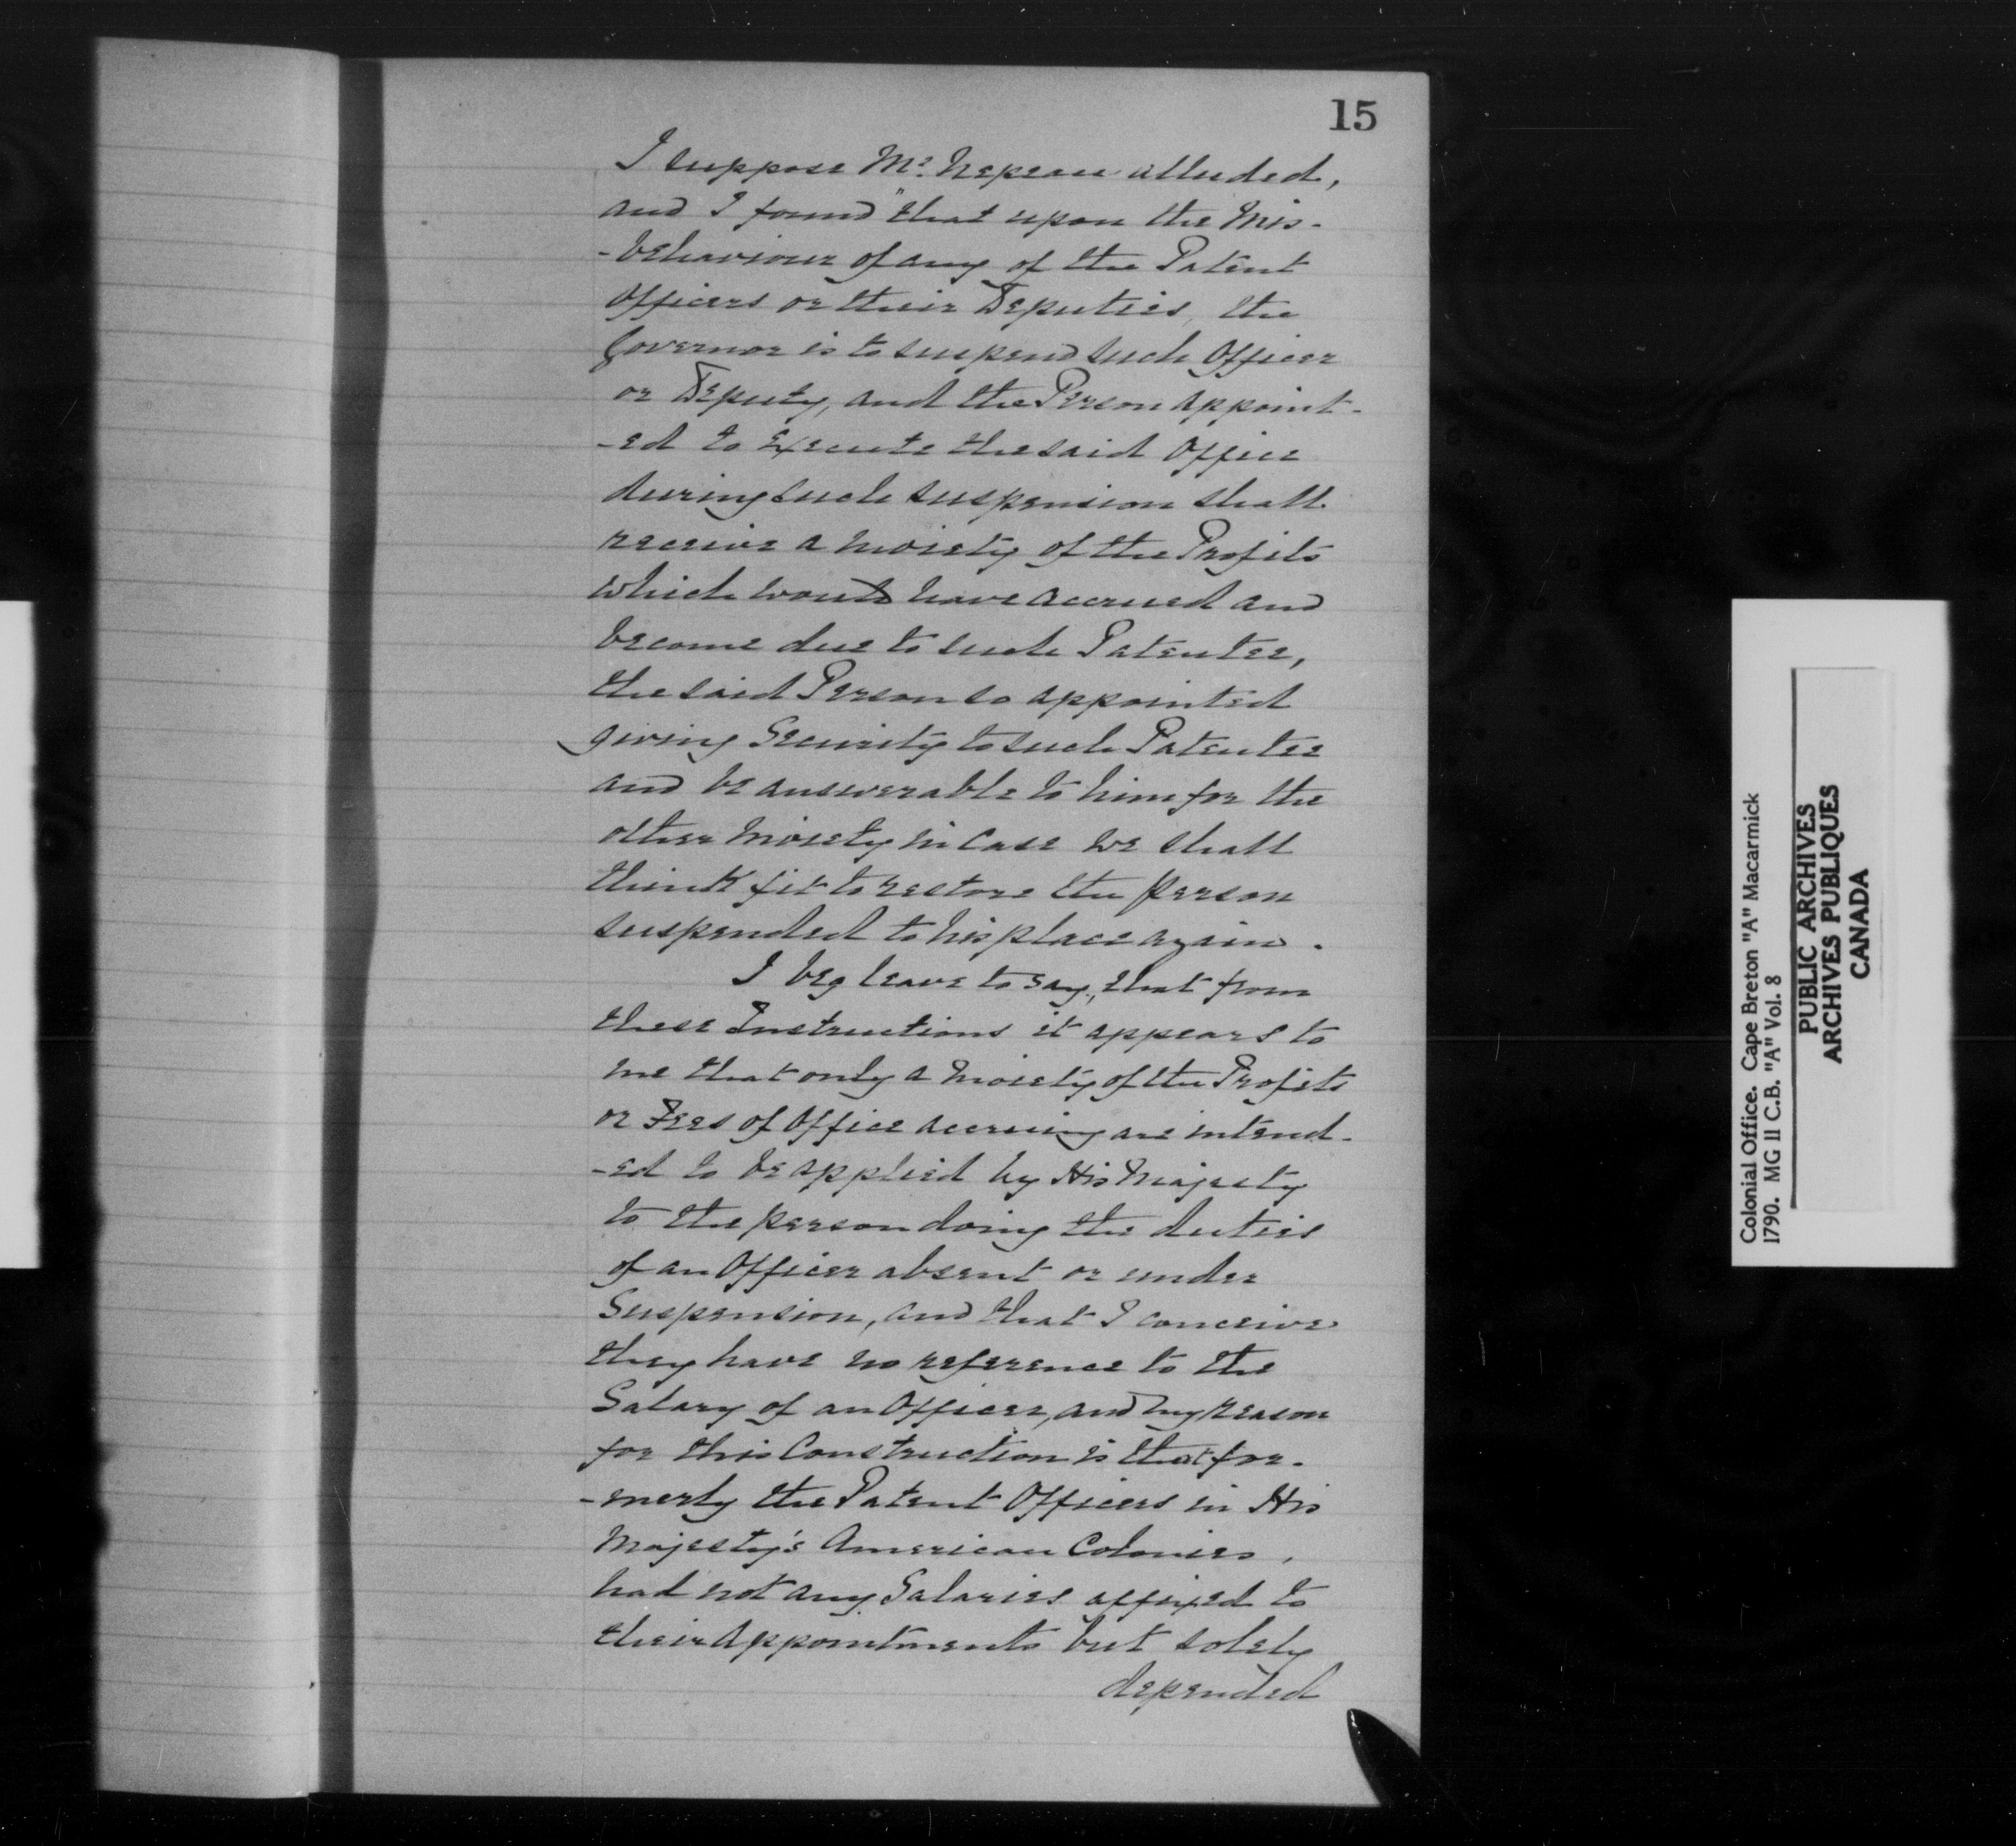 15
I suppose Mr. Nepean alluded,
and I found "that upon the Mis-
-behaviour of any of the Patent
Officers or their Deputies, the
Governor is to suspend such Officer
or Deputy, and the Person appoint-
-ed to Execute the said Office
during such suspension shall
receive a moiety of the Profits
which would have accrued and
become due to such Patentee,
the said Person so appointed
giving Security to such Patentee
and be answerable to him for the
other moiety in Case we shall
think fit to restore the person
suspended to his place again.
I beg leave to say, that from
these Instructions it appears to
me that only a moiety of the Profits
or Fees of Office accruing are intend-
-ed to be applied by His Majesty
to the person doing the duties
of an Officer absent or under
Suspension, and that I conceive
they have no reference to the
Salary of an Officer, and my reason
for this Construction is that for-
-merly the Patent Officers in His
Majesty's American Colonies,
had not any Salaries affixed to
their Appointments but solely
depended
Colonial Office. Cape Breton "A" Macarmick
1790. MG 11 C.B. "A" Vol. 8
PUBLIC ARCHIVES
ARCHIVES PUBLIQUES
CANADA